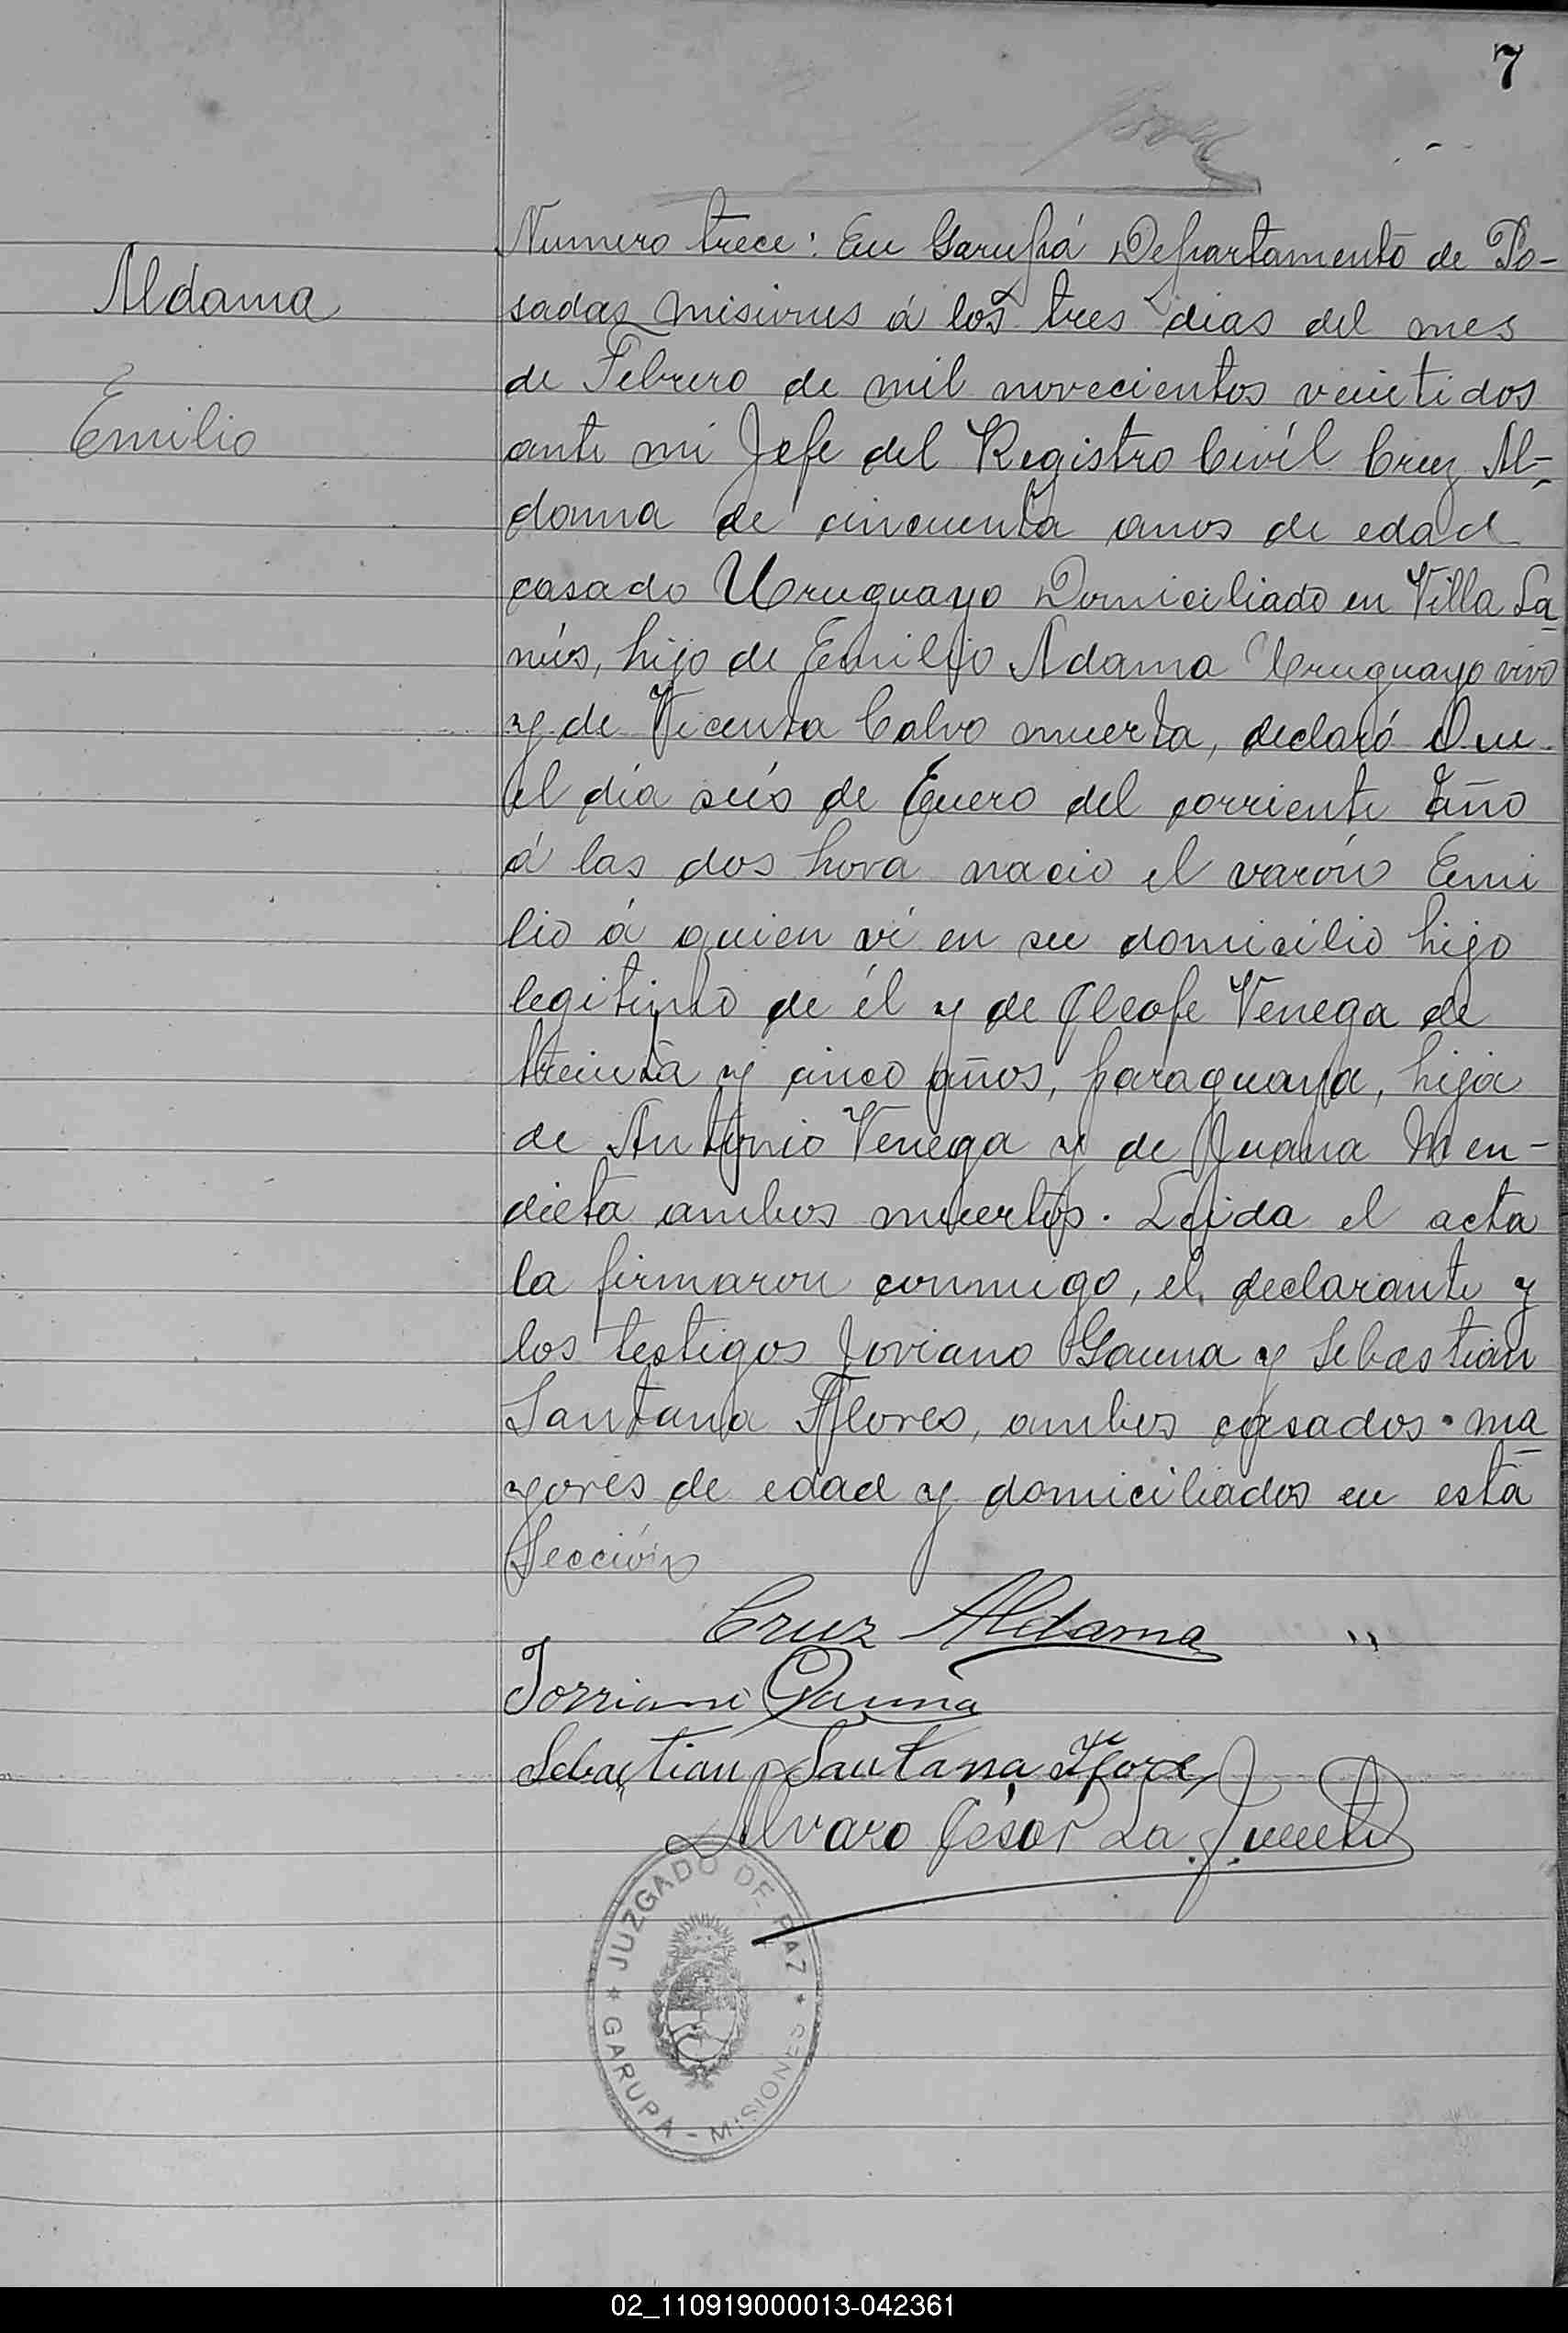 7
Numero trece: En Garupá Departamento de Po-
Aldama
sadas Misiones á los tres dias del mes
de Febrero de mil novecientos veintidos
Emilio
ante mi Jefe del Registro Civil Cruz Al-
dama de cincuenta anos de edad
casado Uruguayo Domiciliado en Villa La
nús, hijo de Emilio Adama Uruguayo vivo
y de Vicenta Calvo muerta, declaró Que
el día seis de Enero del corriente año
á las dos hora nacio el varón Emi
lio á quien ví en su domicilio hijo
legitimo de él y de Cleofe Venega de
treinta y cinco años, paraguaya, hija
de Antonio Venega y de Juana Men-
dieta ambos muertos. Leida el acta
la firmaron conmigo, el declarante y
los testigos Joviano Gauna y Sebastián
Santana Flores, ambos casados. ma
yores de edad y domiciliados en esta
Sección
Cruz Aldama "
Jorriano Gauna
Sebastian Santana Flores
Alvaro César La Fuente
JUZGADO DE PAZ
GARUPA - MISIONES
02_110919000013-042361